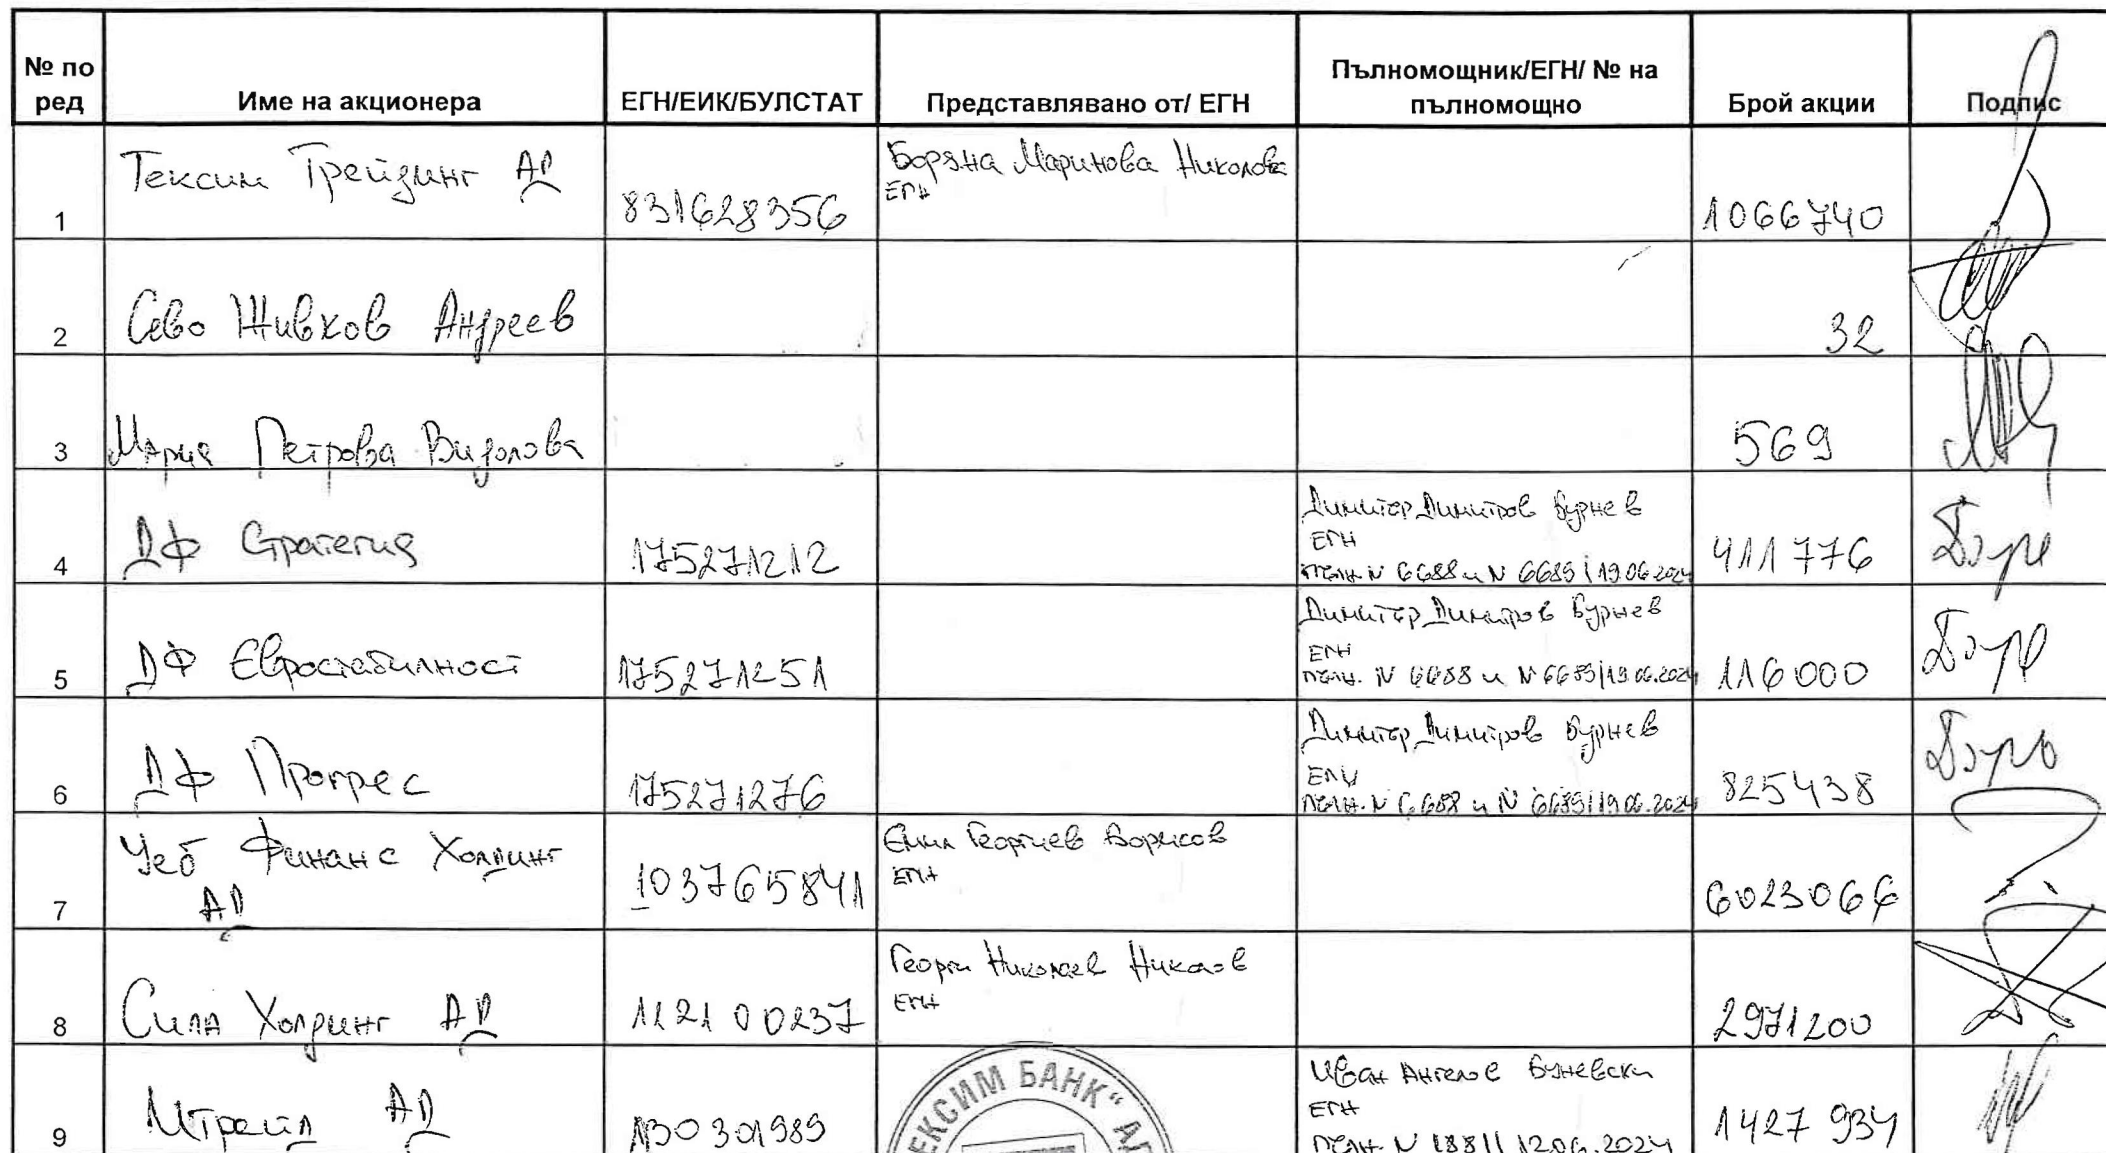 № по ред
Име на акционера
ЕГН/ЕИК/БУЛСТАТ
Представлявано от/ ЕГН
Пълномощник/ЕГН/ № на пълномощно
Брой акции
Подпис
1
Тексим Трейдинг АД
831628356
Боряна Маринова Николова
ЕГН
1066740
2
Сево Живков Андреев
32
3
Мария Петрова Видолова
569
4
ДФ Стратегия
175271212
Димитър Димитров Бурнев
ЕГН
пълн. N 6688 и N 6689/19.06.2024
411776
5
ДФ Евростабилност
175271251
Димитър Димитров Бурнев
ЕГН
пълн. N 6688 и N 6689/19.06.2024
116000
6
ДФ Прогрес
175271276
Димитър Димитров Бурнев
ЕГН
пълн. N 6688 и N 6689/19.06.2024
825438
7
Уеб Финанс Холдинг
АД
103765841
Емил Георгиев Борисов
ЕГН
6023066
8
Сила Холдинг АД
112100237
Георги Николаев Николов
ЕГН
2971200
9
Мтрейд АД
130301989
ЕКСИМ БАНК" А
Иван Ангелов Буневски
ЕГН
пълн. N 1881/12.06.2024
1427934